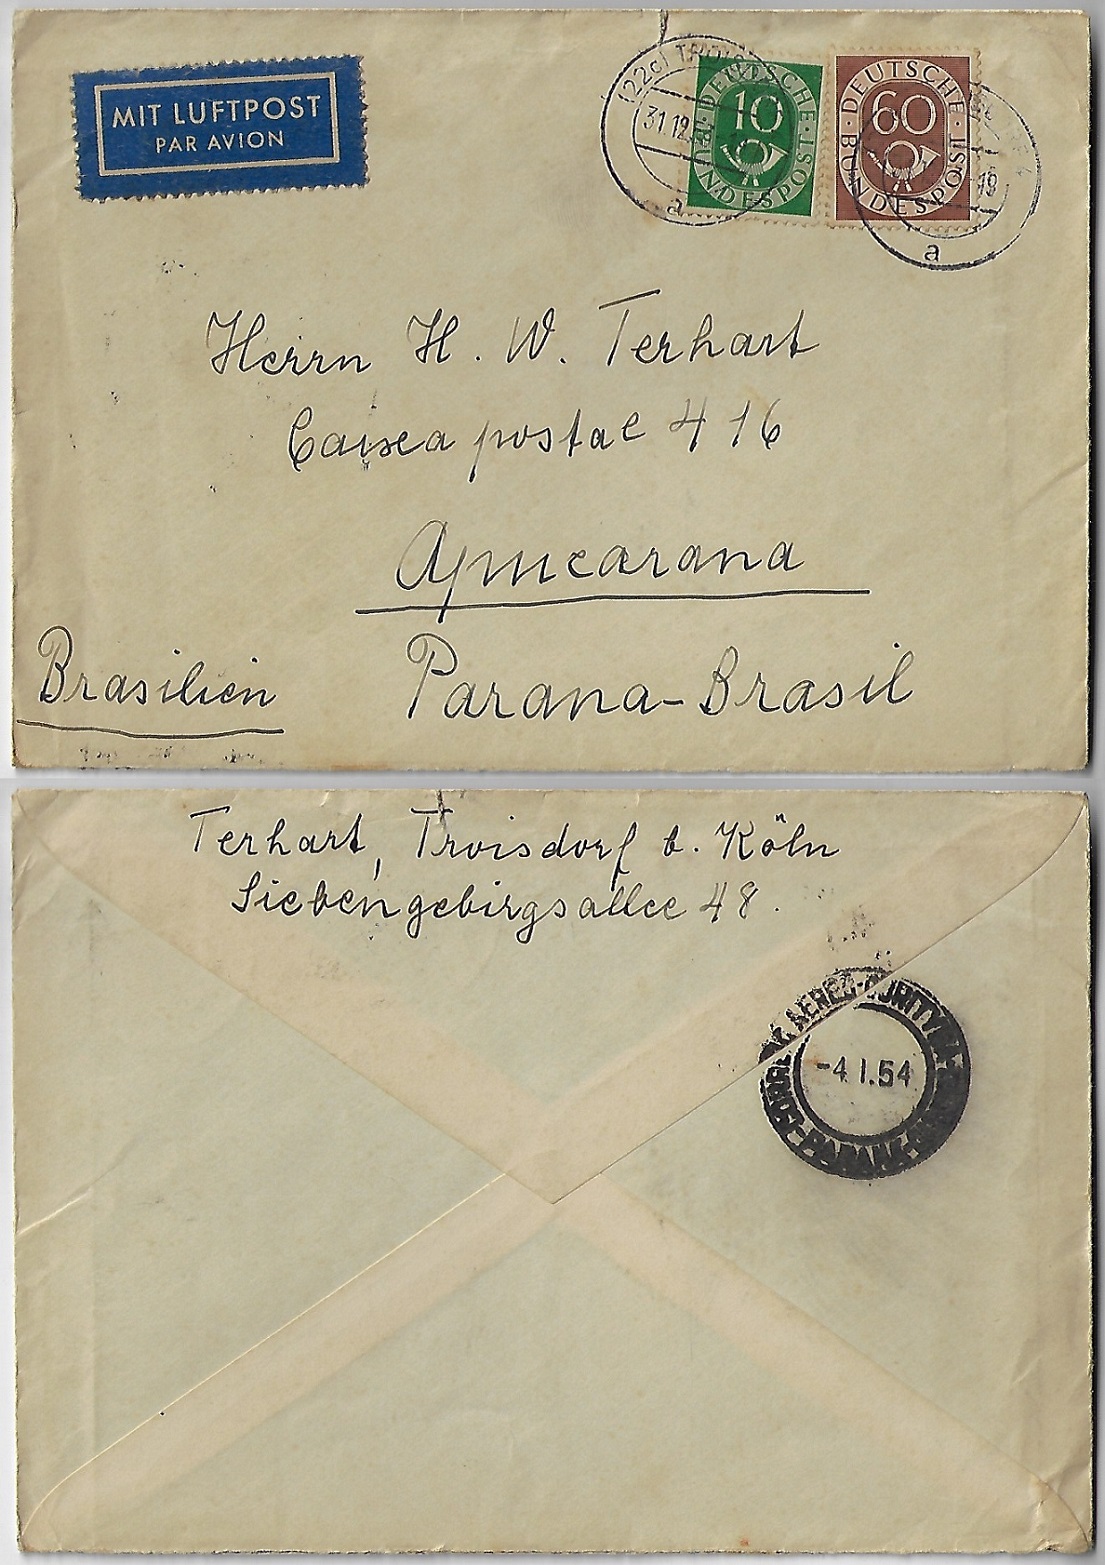 MIT LUFTPOST
PAR AVION
(22c) TROISD
31.12.
a
DEUTSCHE BUNDESPOST
10
DEUTSCHE BUNDESPOST
60
-19
a
Herrn H. W. Terhart
Caixa postal 416
Apucarana
Brasilien
Parana-Brasil
Terhart, Troisdorf b. Köln
Siebengebirgsallee 48.
AEREO-CURITYBA
-4.I.54
PARANÁ